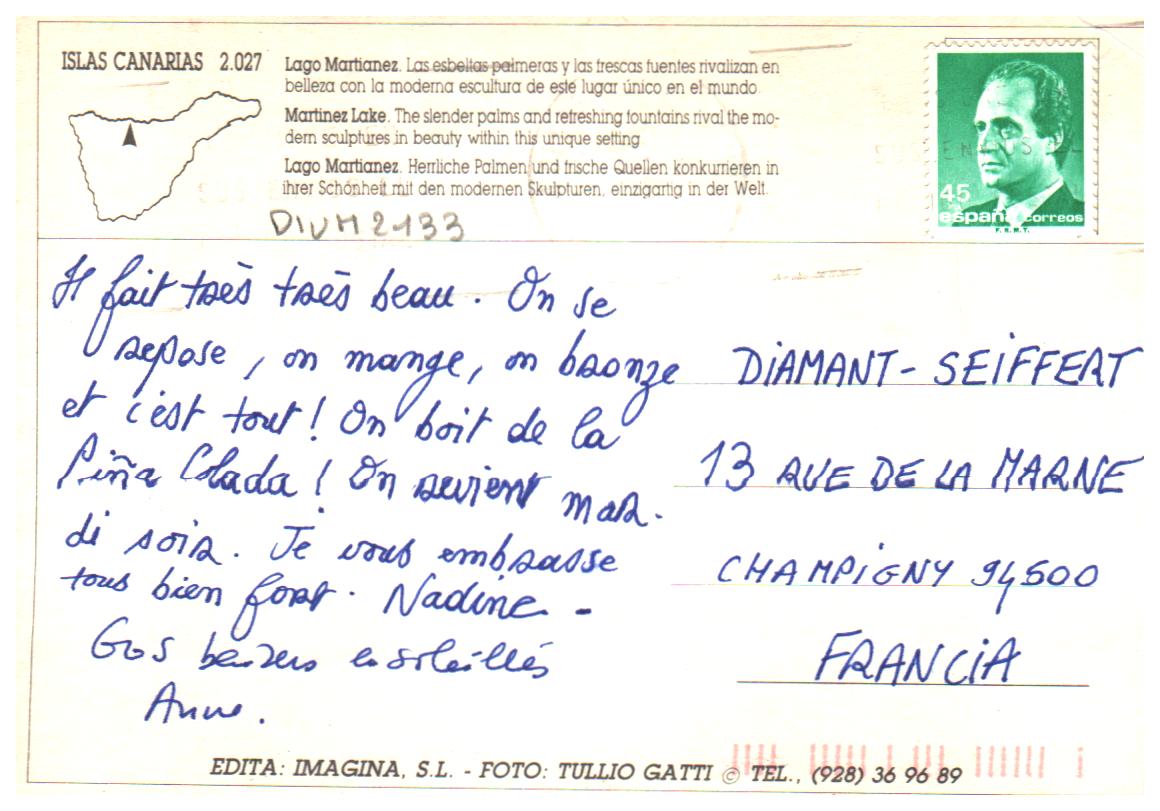 ISLAS CANARIAS 2.027
Lago Martianez. Las esbeltas palmeras y las frescas fuentes rivalizan en
belleza con la moderna escultura de este lugar único en el mundo.
Martinez Lake. The slender palms and refreshing fountains rival the mo-
dern sculptures in beauty within this unique setting
Lago Martianez. Herrliche Palmen und frische Quellen konkurrieren in
ihrer Schönheit mit den modernen Skulpturen, einzigartig in der Welt.
DIVM2133
45
españa correos
F.N.M.T.
Il fait très très beau. On se
repose, on mange, on bronze
et c'est tout! On boit de la
Piña Colada! On revient mar-
di soir. Je vous embrasse
tous bien fort. Nadine -
Gos baisers ensoleillés
Anne.
DIAMANT-SEIFFERT
13 RUE DE LA MARNE
CHAMPIGNY 94500
FRANCIA
EDITA: IMAGINA, S.L. - FOTO: TULLIO GATTI © TEL., (928) 36 96 89